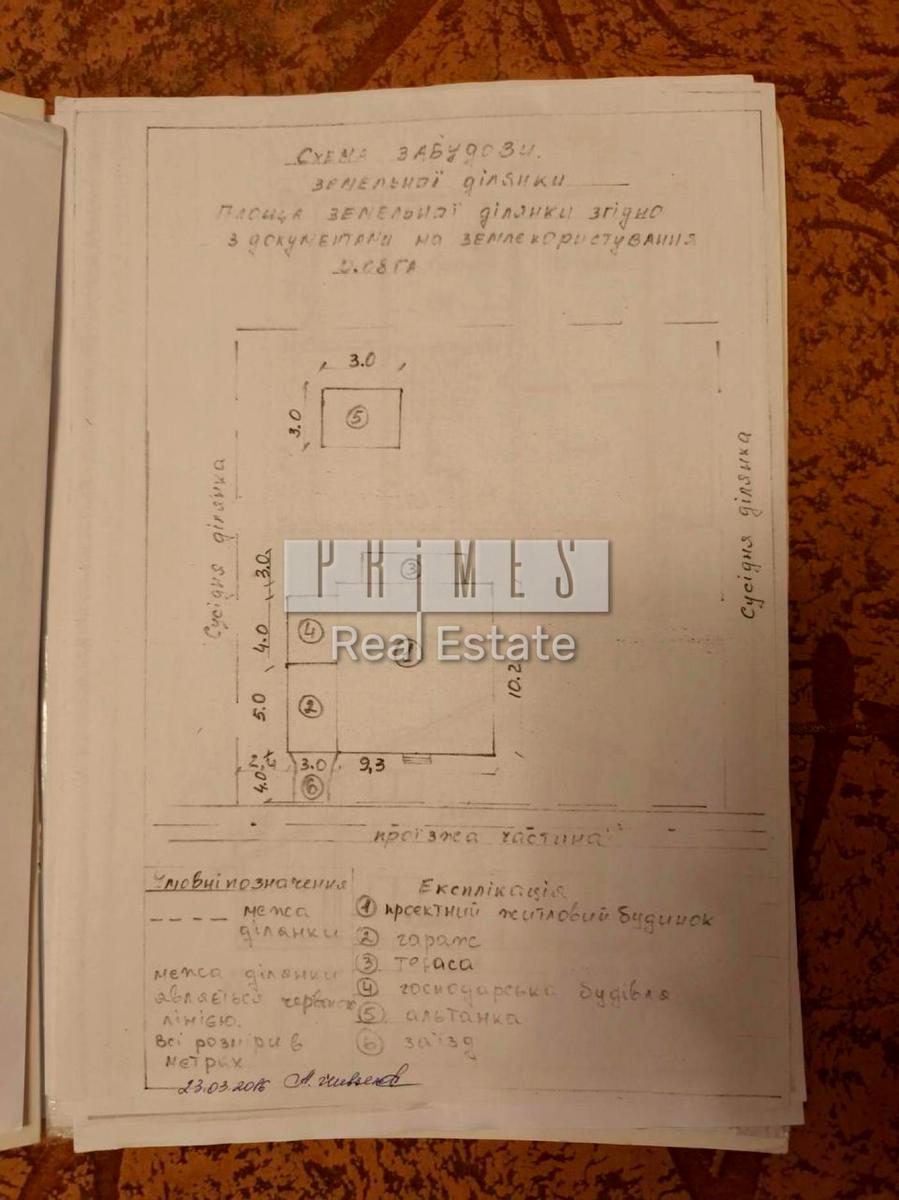 Схема забудови.
земельної ділянки
Площа земельної ділянки згідно
з документами на землекористування
0.08 га
3.0
3.0
5
Сусідня ділянка
Сусідня ділянка
PRiMES
Real Estate
3
3.0
4
4.0
1
10.2
2
5.0
3.0
9,3
4.0
6
проїзжа частина
Умовні позначення
межа
ділянки
межа ділянки
являється червоною
лінією.
Всі розміри в
метрах
Експлікація
1 проектний житловий будинок
2 гараж
3 тераса
4 господарська будівля
5 альтанка
6 заїзд
23.03.2016